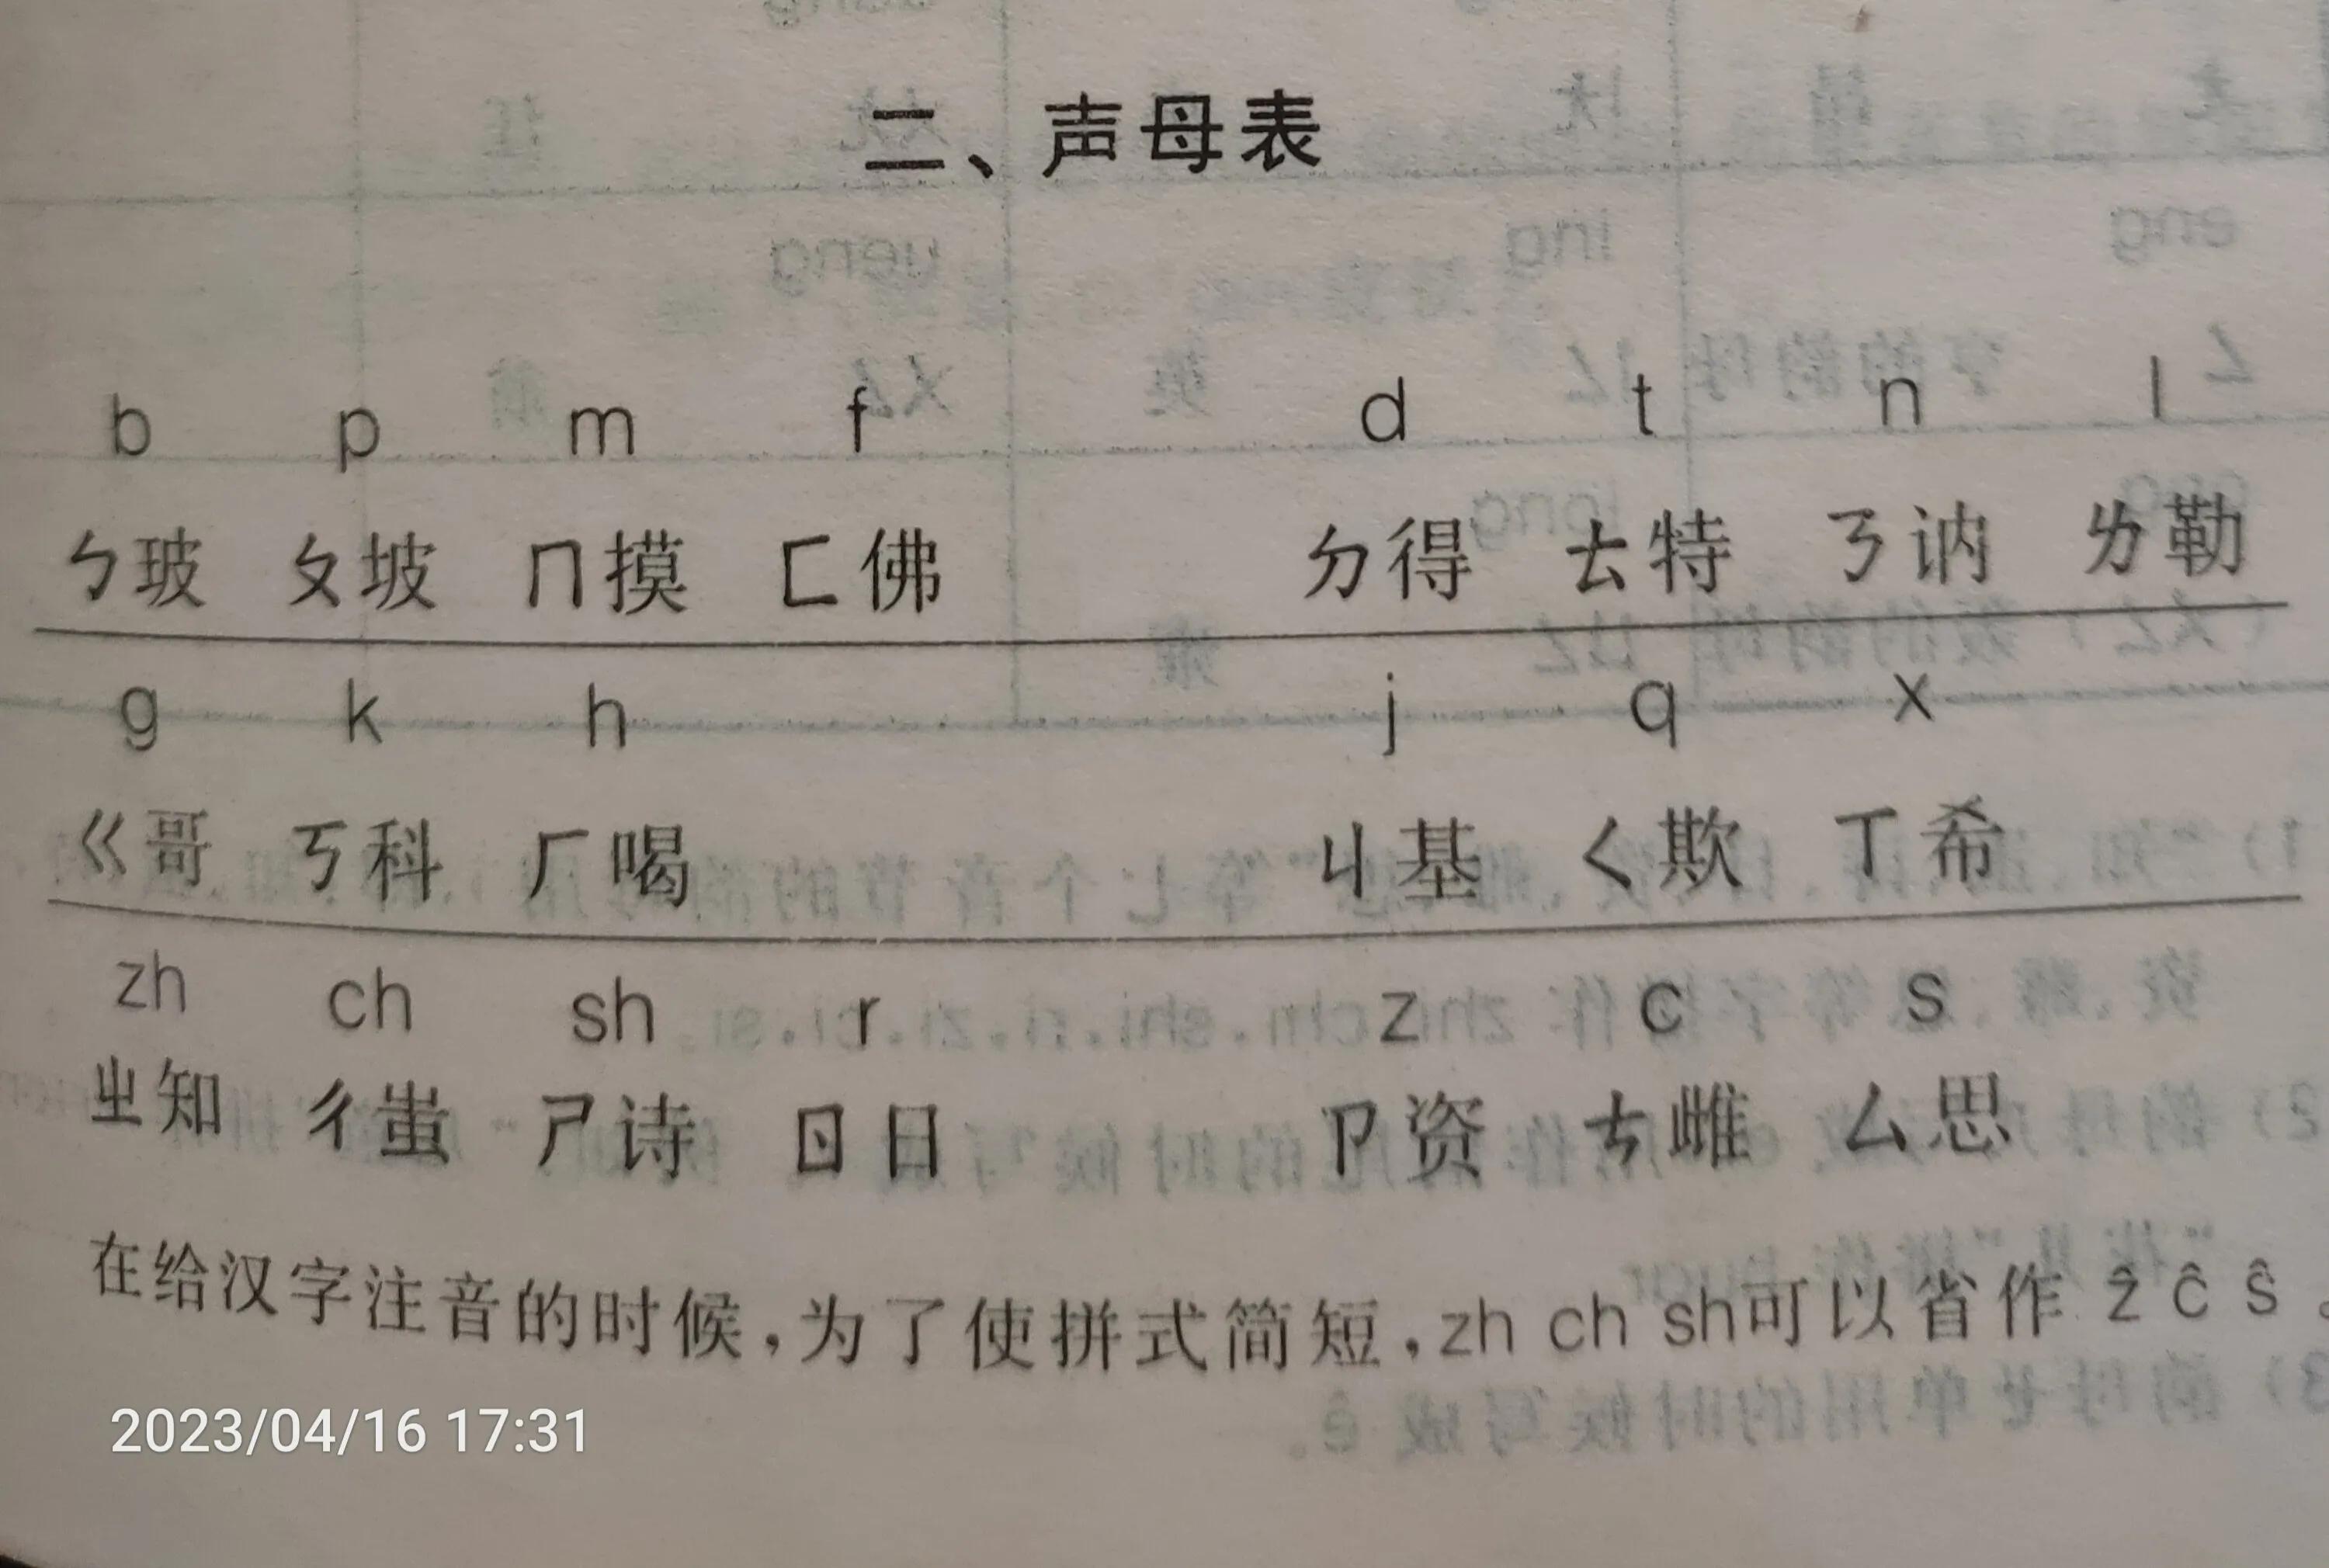 二、声母表
b p m f d t n l
ㄅ玻 ㄆ坡 ㄇ摸 ㄈ佛 ㄉ得 ㄊ特 ㄋ讷 ㄌ勒
g k h j q x
ㄍ哥 ㄎ科 ㄏ喝 ㄐ基 ㄑ欺 ㄒ希
zh ch sh r z c s
ㄓ知 ㄔ蚩 ㄕ诗 ㄖ日 ㄗ资 ㄘ雌 ㄙ思
在给汉字注音的时候,为了使拼式简短,zh ch sh可以省作 ẑ ĉ ŝ。
2023/04/16 17:31